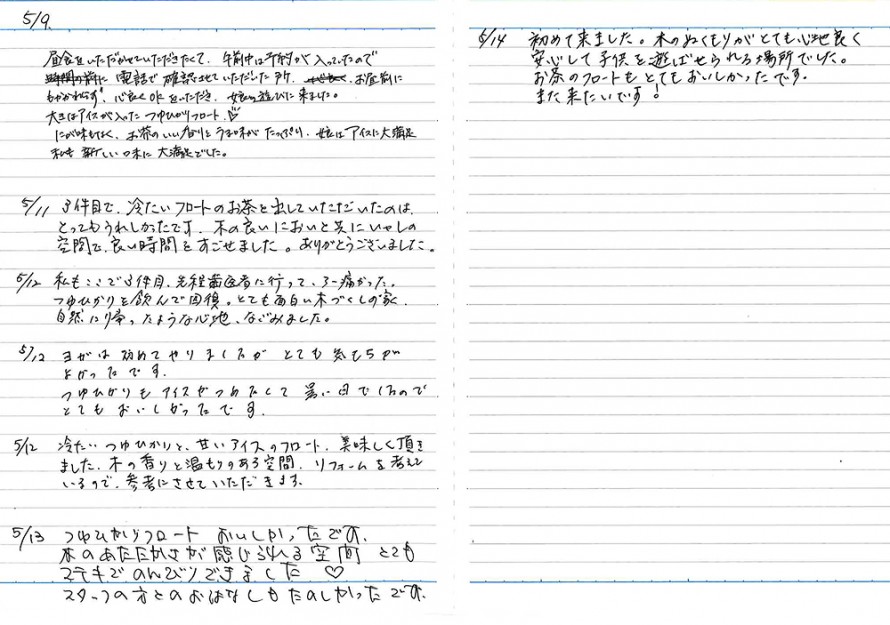 5/9.
昼食をいただかせていただきたくて、午前中は予約が入っていたので
電話で確認させていただいた所、お昼前に
もかかわらず、心良くOKをいただき、娘と遊びに来ました。
大王はアイスが入ったつゆひかりフロート♡
にが味もなく、お茶のいい香りとうま味がたっぷり、娘はアイスに大満足
私も新しい味に大満足でした。
5/11 3件目で、冷たいフロートのお茶を出していただいたのは、
とってもうれしかったです。木の良いにおいと共にいやしの
空間で、良い時間をすごせました。ありがとうございました。
5/12 私もここで3件目、先程歯医者に行って、3〜痛かった。
つゆひかりを飲んで回復。とても面白い木づくしの家、
自然に帰ったような心地、なごみました。
5/12 ヨガは初めてやりましたが とても気もちが
よかったです。
つゆひかりも アイスがつめたくて 暑い日でしたので
とても おいしかったです。
5/12 冷たいつゆひかりと、甘いアイスのフロート、美味しく頂き
ました。木の香りと温もりのある空間、リフォームを考えて
いるので、参考にさせていただきます。
5/13 つゆひかりフロート おいしかったです。
木のあたたかさが感じられる空間 とても
ステキでのんびりできました ♡
スタッフの方とのおはなしもたのしかったです。
5/14 初めて来ました。木のぬくもりがとても心地良く
安心して子供を遊ばせられる場所でした。
お茶のフロートもとてもおいしかったです。
また来たいです！